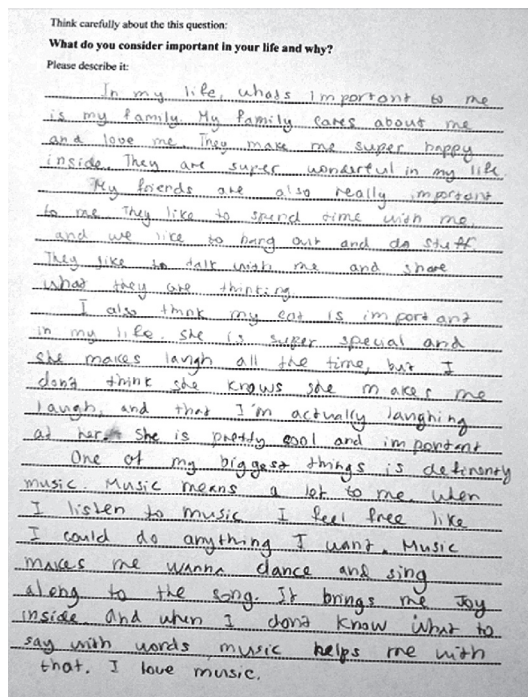 Think carefully about the this question:
What do you consider important in your life and why?
Please describe it:
In my life, whats important to me
is my family. My family cares about me
and love me. They make me super happy
inside. They are super wonderful in my life.
My friends are also really important
to me. They like to spend time with me,
and we like to hang out and do stuff.
They like to talk with me and share
what they are thinking.
I also think my cat is important
in my life. She is super special and
she makes laugh all the time, but I
don't think she knows she makes me
laugh, and that I'm actually laughing
at her. She is pretty cool and important
One of my biggest things is definently
music. Music means a lot to me. When
I listen to music I feel free like
I could do anything I want. Music
makes me wanna dance and sing
along to the song. It brings me joy
inside. And when I dont know what to
say with words, music helps me with
that. I love music.